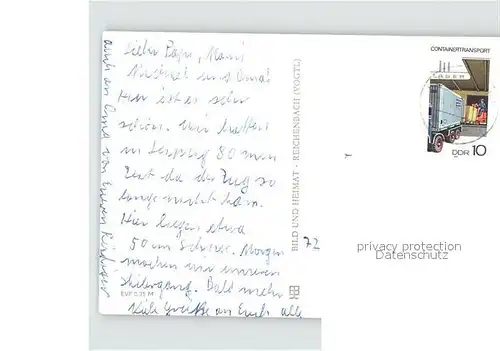 Liebe Papa, Mami
und Oma!
Hier ist es sehr
schön. Wir hatten
in Leipzig 80 min
Zeit da der Zug so
lange nicht kam.
Hier liegen etwa
50 cm Schnee. Morgen
machen wir unseren
Skilergang. Bald mehr
Viele Grüße an Euch alle
auch an Oma von Euren
BILD UND HEIMAT · REICHENBACH (VOGTL)
EVP 0,25 M
72
CONTAINERTRANSPORT
DDR 10
privacy protection
Datenschutz